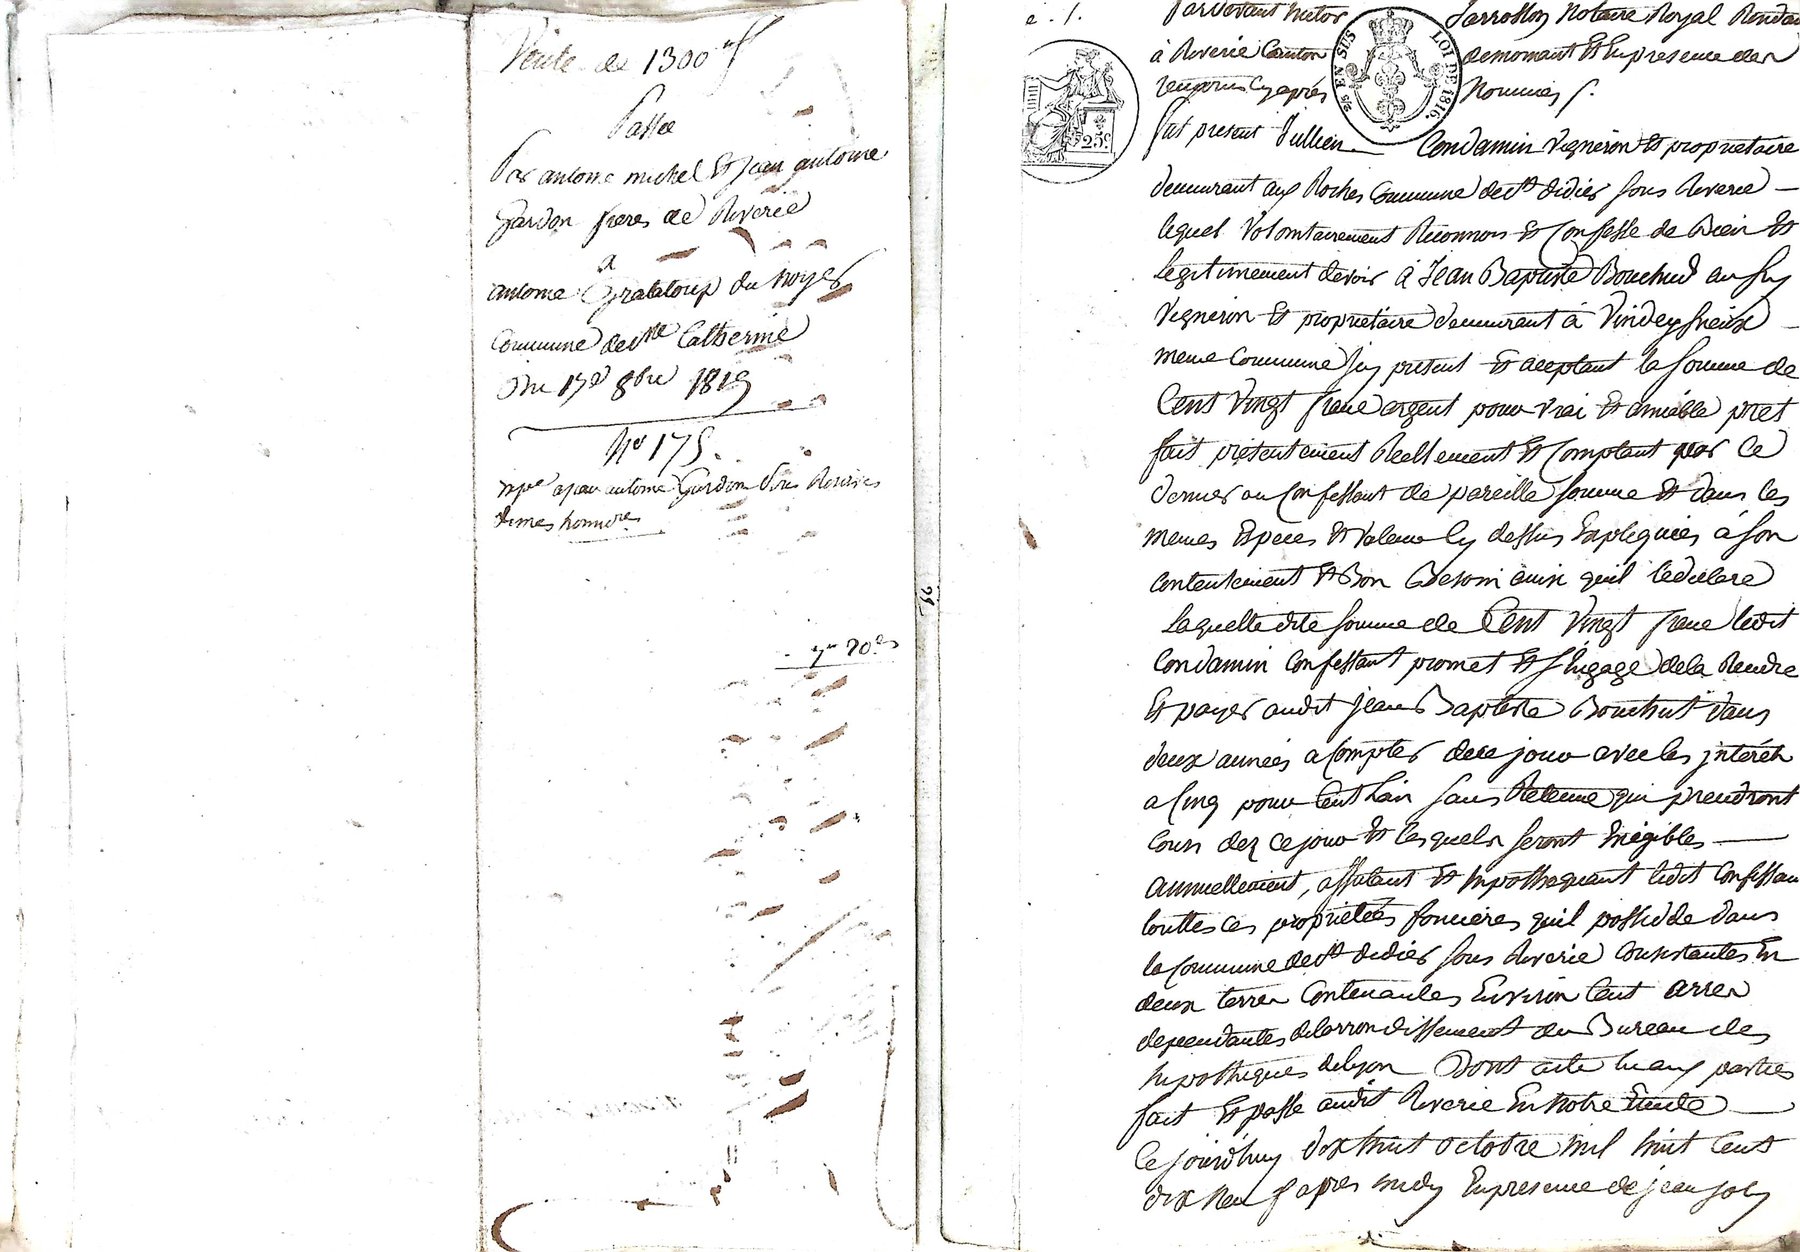 Vente de 1300 f
Passée
Par antoine michel Et Jean antoine
Gardon freres de Riverie
a
antoine Grataloup du noyer
Commune de Ste Catherine
Du 17e 8bre 1819
No 175.
a jean antoine Gardon Riverie
20
22
Pardevant Victor Jarrosson Notaire Royal Residan
à Riverie Canton demornant Et En presence des
temoins Cy après Nommés
25c
2/5 EN SUS LOI DE 1816.
fut présent Jullien Condamin Vigneron Et propriétaire
demeurant aux Roches Commune de St didier sous Riverie
lequel Volontairement Reconnois Et Confesse de Bien Et
legitimement devoir à Jean Baptiste Bouchut
Vigneron Et propriétaire demeurant à Vindeysrieux
meme Commune Jcy présent Et aceptant la somme de
Cent Vingt franc argent pour vrai Et amiable pret
fait présentement Réellement Et Comptant par Ce
dernier au Confessant de pareille somme Et dans les
memes Especes Et Valeur Cy dessus Expliquées à son
contentement Et Bon Besoin ainsi quil le declare
Laquelle dite somme de Cent Vingt franc ledit
Condamin Confessant promet Et s'Engage de la Rendre
Et payer audit Jean Baptiste Bouchut dans
deux années a Compter de ce jour avec les jntérêts
a Cinq pour Cent L'an sans Retenue qui prendront
cours dez ce jour Et lesquels seront Exigibles
annuellement, affectant Et hypothequant ledit Confessan
touttes ces propriétés foncières quil possede dans
la Commune de St didier sous Riverie Consistantes En
deux terres Contenantes Environ Cent arres
dependantes de larrondissement du Bureau des
hypotheques de lyon Dont acte lu aux parties
fait Et passé audit Riverie En notre Etude
Ce jourd'huy dix huit octobre mil huit Cent
dix neuf apres midy En presence de jean